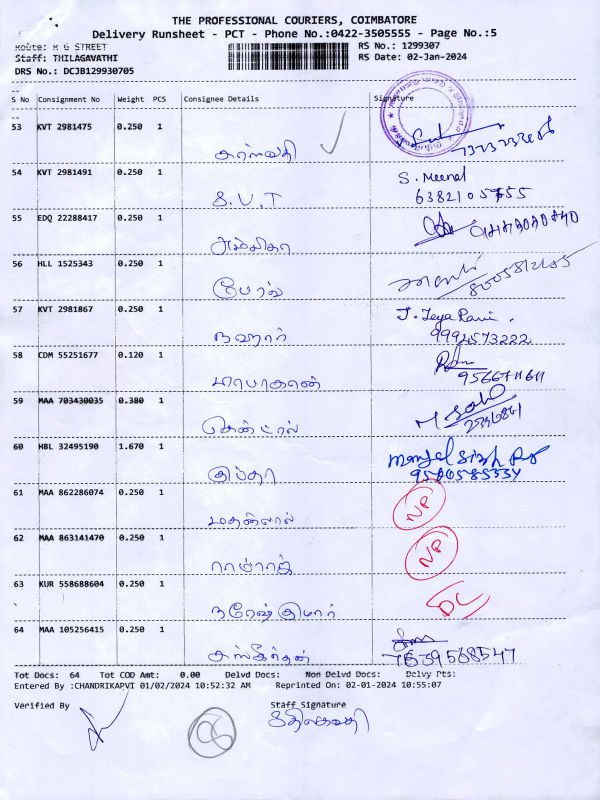 THE PROFESSIONAL COURIERS, COIMBATORE
Delivery Runsheet - PCT - Phone No.:0422-3505555 - Page No.:5
Route: M G STREET RS No.: 1299307
Staff: THILAGAVATHI RS Date: 02-Jan-2024
DRS No.: DCJB129930705
S No Consignment No Weight PCS Consignee Details Signature
53 KVT 2981475 0.250 1
சரஸ்வதி
54 KVT 2981491 0.250 1 S. Meenal
S.V.T 6382105755
55 EDQ 22288417 0.250 1
அம்பிகா
56 HLL 1525343 0.250 1
8005812185
57 KVT 2981867 0.250 1 J. Jeya Rani.
நஹார் 9994573222
58 CDM 55251677 0.120 1
59 MAA 703430035 0.380 1
சென்ட்ரல்
60 HBL 32495190 1.670 1
குப்தா
61 MAA 862286074 0.250 1 NP
மதன்லால்
62 MAA 863141470 0.250 1 NP
ராம்ராஜ்
63 KUR 558688604 0.250 1 DC
நரேஷ்குமார்
64 MAA 105256415 0.250 1
7639568547
Tot Docs: 64 Tot COD Amt: 0.00 Delvd Docs: Non Delvd Docs: Delvy Pts:
Entered By :CHANDRIKAPVI 01/02/2024 10:52:32 AM Reprinted On: 02-01-2024 10:55:07
Verified By Staff Signature